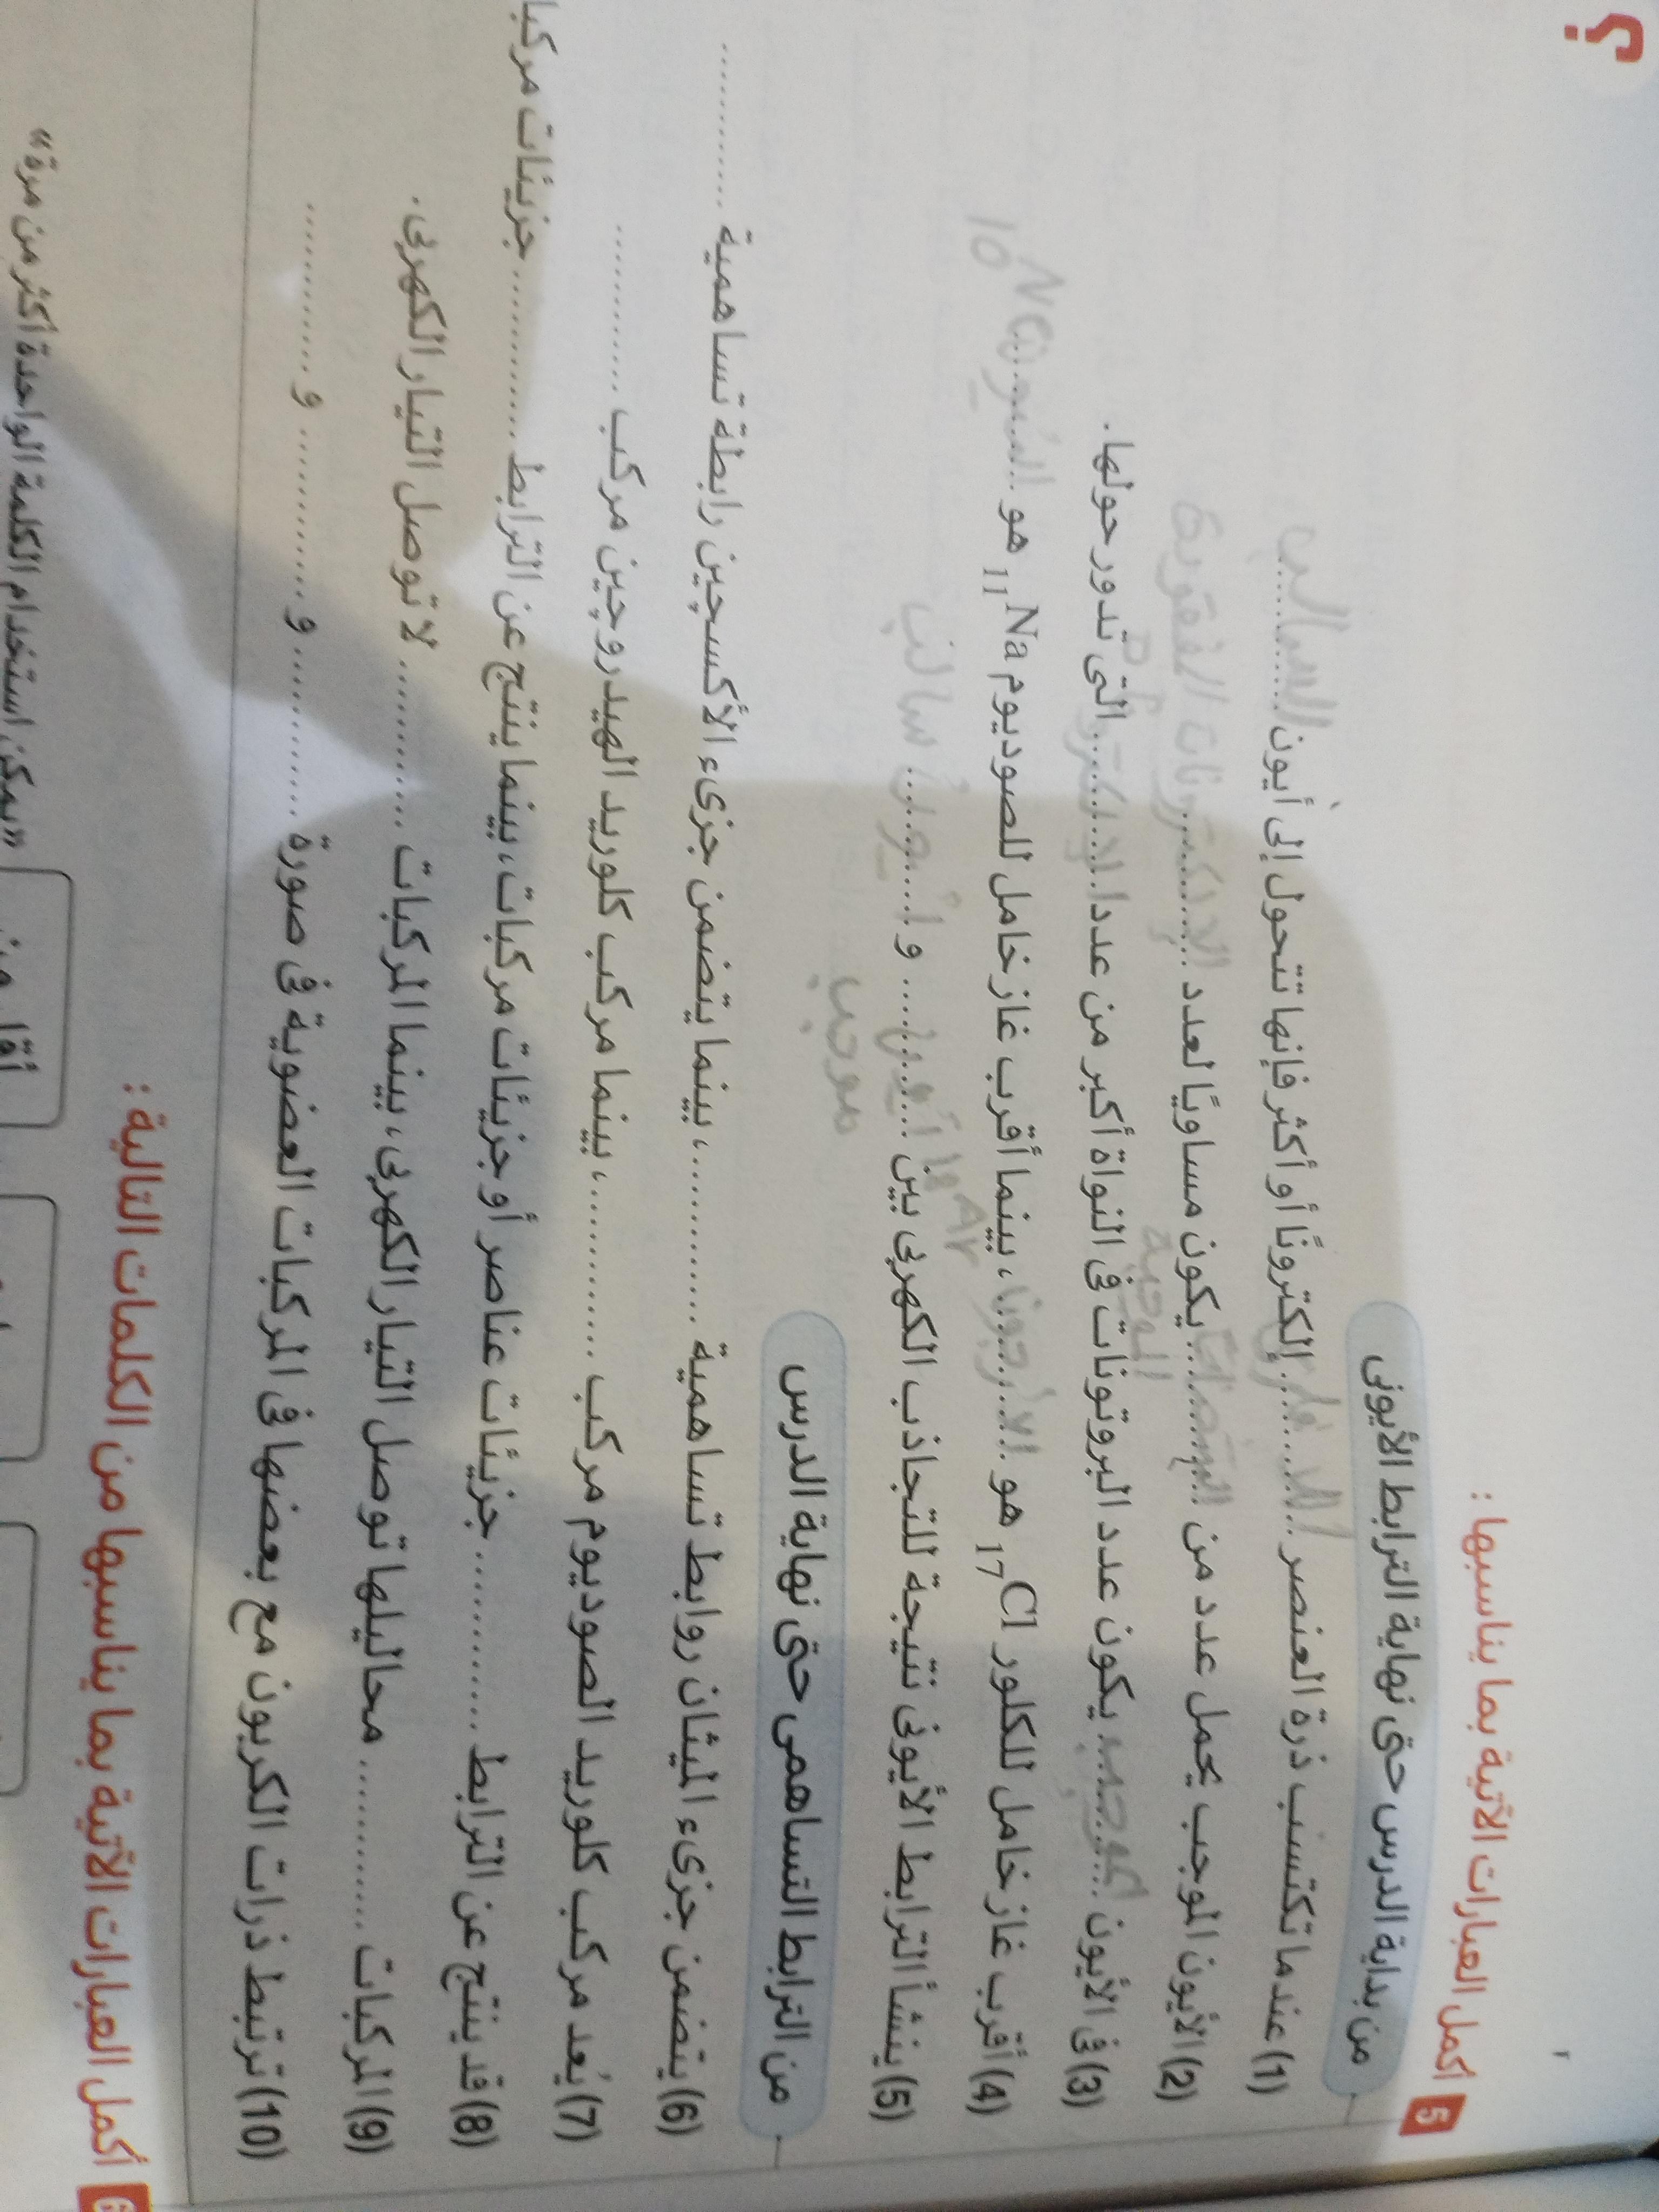 ؟
5 أكمل العبارات الآتية بما يناسبها :
من بداية الدرس حتى نهاية الترابط الأيونى
(1) عندما تكتسب ذرة العنصر ............ إلكترونًا أو أكثر فإنها تتحول إلى أيون السالب
(2) الأيون الموجب يحمل عدد من ............ الموجبة يكون مساويًا لعدد الإلكترونات المفقودة
(3) فى الأيون موجب يكون عدد البروتونات فى النواة أكبر من عدد الإلكترونات التى تدور حولها.
(4) أقرب غاز خامل للكلور 17Cl هو الأرجون 18Ar ، بينما أقرب غاز خامل للصوديوم 11Na هو النيون 10Ne
(5) ينشأ الترابط الأيونى نتيجة للتجاذب الكهربى بين أيون موجب و أيون سالب
من الترابط التساهمى حتى نهاية الدرس
(6) يتضمن جزىء الميثان روابط تساهمية ............ ، بينما يتضمن جزىء الأكسچين رابطة تساهمية ............
(7) يُعد مركب كلوريد الصوديوم مركب ............ ، بينما مركب كلوريد الهيدروچين مركب ............
(8) قد ينتج عن الترابط ............ جزيئات عناصر أو جزيئات مركبات، بينما ينتج عن الترابط ............ جزيئات مركبا
(9) المركبات ............ محاليلها توصل التيار الكهربى، بينما المركبات ............ لا توصل التيار الكهربى.
(10) ترتبط ذرات الكربون مع بعضها فى المركبات العضوية فى صورة ............ و ............ و ............
6 أكمل العبارات الآتية بما يناسبها من الكلمات التالية :
«يمكن استخدام الكلمة الواحدة أكثر من مرة»